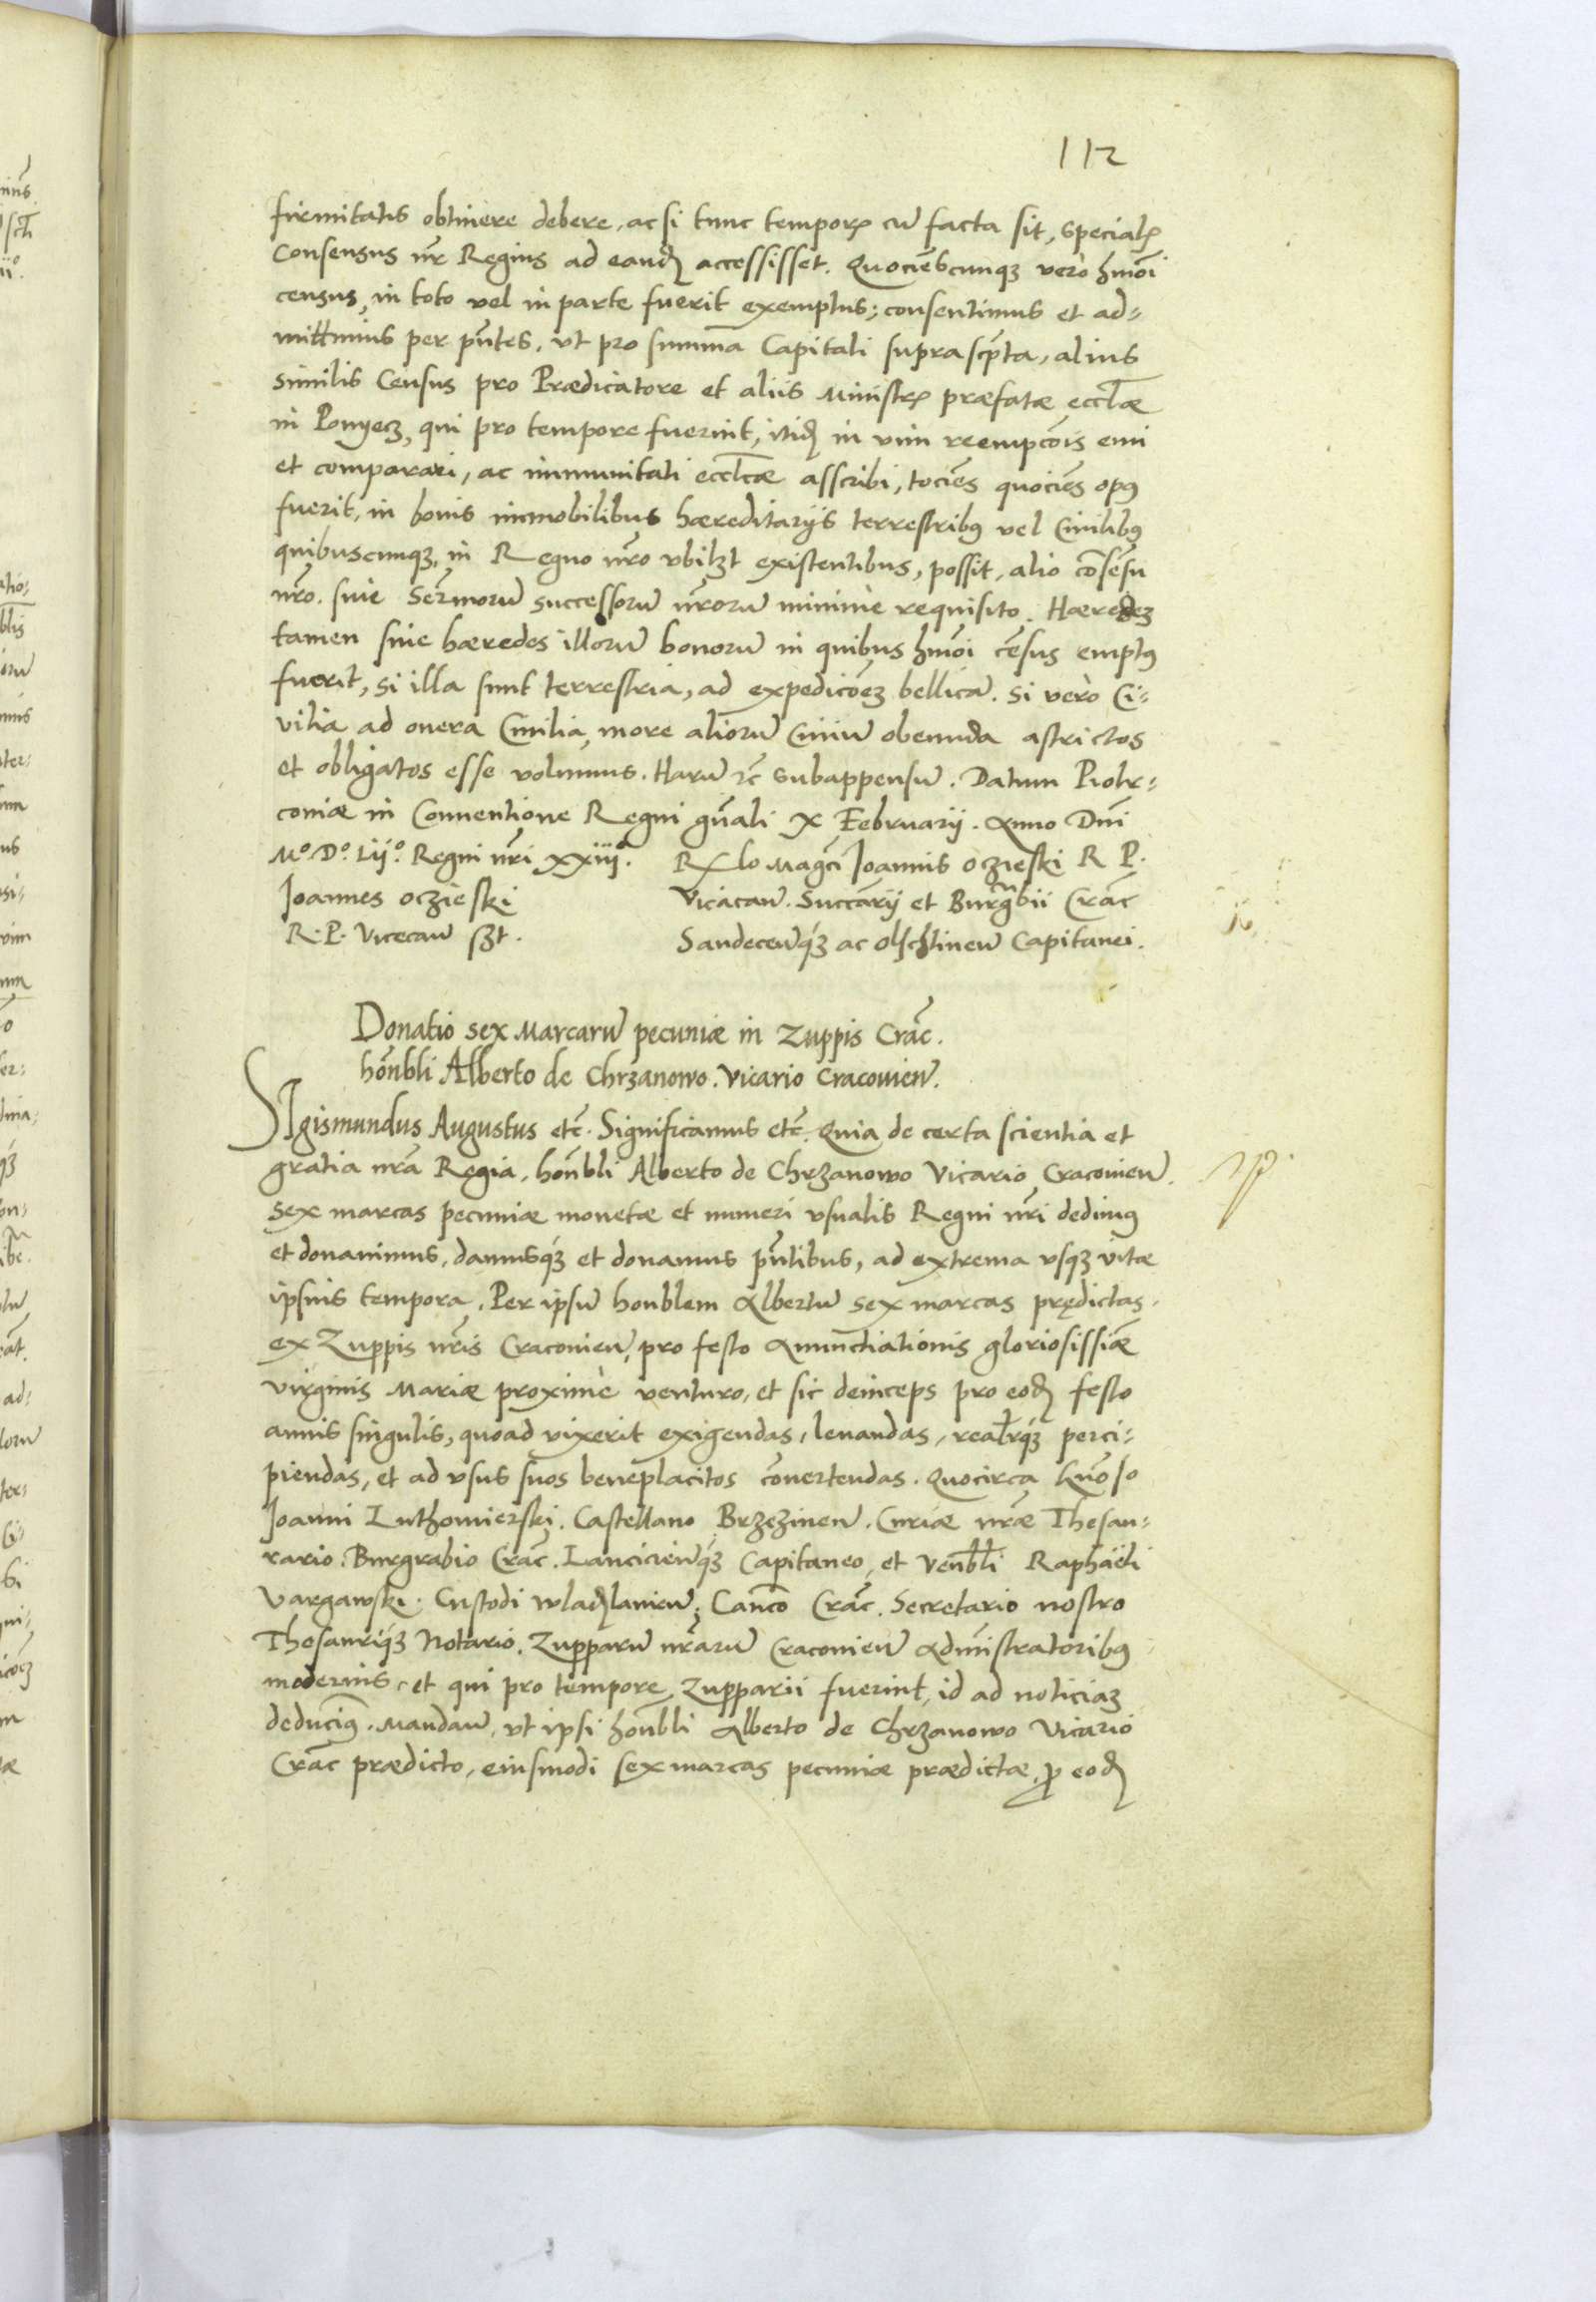 112
firmitatis obtinere debere, ac si tunc temporis cu facta sit, specialis
Consensus nr Regius ad eandem accessisset. Quociescunqz vero hmoi
census, in toto vel in parte fuerit exemptus; consentimus et ad-
mittimus per pntes, ut pro summa Capitali suprascpta, alius
similis Census pro Prædicatore et aliis Ministris præfatæ eccliæ
in Ponyecz, qui pro tempore fuerint, itidem in vim reempcois emi
et comparari, ac immunitati eccticæ asscribi, tocies quocies opus
fuerit, in bonis immobilibus hæreditarys terrestribus vel Civilibus
quibuscunqz, in Regno nro ubilzt existentibus, possit, alio cosesu
nro. sive Sermorum successorum nrorum minime requisito. Hæredez
tamen sive hæredes illorum bonorum in quibus hmoi cesus emptus
fuerit, si illa sunt terrestria, ad expedicoez bellicam. Si vero Ci-
vilia ad onera Civilia, more aliorum Civium obeunda astrictos
et obligatos esse volumus. Harum etc subappensum. Datum Piotr-
coviæ in Conventione Regni gnali X Februarij. Anno Dni
Mo. Do. Lijo. Regni nri xxiiio. Rlo Magci Joannis Oczieski R P.
Joannes Oczieski Vicacan. Succarij et Burgrabii Crac
R. P. Vicecan sszt. Sandecenqz ac Olschtinen Capitanei.
Donatio sex Marcarum pecuniæ in Zuppis Crac.
honbli Alberto de Chrzanowo. Vicario Cracovien.
SIgismundus Augustus etc. Significamus etc. Quia de certa scientia et
gratia nra Regia, honbli Alberto de Chrzanowo Vicario Cracovien.
sex marcas pecuniæ monetæ et numeri usualis Regni nri dedimus
et donavimus, damusqz et donamus pntibus, ad extrema usqz vitæ
ipsius tempora. Per ipsum honblem Albertum sex marcas prędictas.
ex Zuppis nris Cracovien, pro festo Anunctiationis gloriosissiæ
virginis Mariæ proxime venturo, et sic deinceps pro eodem festo
annis singulis, quoad vixerit exigendas, levandas, realrqz perci-
piendas, et ad usus suos beneplacitos covertendas. Quocirca
Joanni Luthomierski. Castellano Brzezinen. Curiæ nræ Thesau-
rario. Burgrabio Crac. Lancicienqz Capitaneo, et venbli Raphaëli
Vargawski. Custodi wladislavien, Canco Crac. Secretario nostro
Thesauriqz Notario. Zupparum nrarum Cracovien Admistratoribus
modernis, et qui pro tempore Zupparii fuerint, id ad noticiaz
deducimus. Mandan, ut ipsi honbli Alberto de Chrzanowo Vicario
Crac prædicto, eiusmodi sex marcas pecuniæ prædictæ, pro eodem